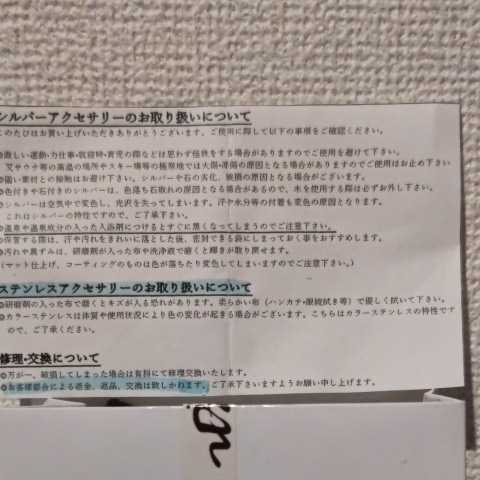 シルバーアクセサリーのお取り扱いについて
このたびはお買い上げいただきありがとうございます。ご使用に際して以下の事項をご確認ください。
激しい運動・力仕事・就寝時・育児の際などは思わぬ怪我をする場合がありますのでご使用を避けて下さい。
又サウナ等の高温の場所やスキー場等の極寒地では火傷・凍傷の原因となる場合がありますのでご使用はお止め下さい
硬い素材との接触はお避け下さい。シルバーや石の劣化、破損の原因となる場合がございます。
色付きや石付きのシルバーは、色落ち石取れの原因となる場合があるので、水を使用する際は必ずお外し下さい。
シルバーは空気中で変色し、光沢を失ってしまいます。汗や水分等の付着も変色の原因となります。
これはシルバーの特性ですので、ご了承下さい。
温泉や温泉成分の入った入浴剤につけるとすぐに黒くなってしまうのでご注意下さい。
保管する際は、汗や汚れをきれいに落とした後、密封できる袋にしまっておく事をおすすめします。
汚れや黒ずみは、研磨剤が入った布や洗浄液で磨くと輝きが取り戻せます。
(マット仕上げ、コーティングのものは色が落ちたり変色してしまいますのでご注意下さい。)
ステンレスアクセサリーのお取り扱いについて
研磨剤の入った布で磨くとキズが入る恐れがあります。柔らかい布(ハンカチ・眼鏡拭き等)で優しく拭いて下さい。
カラーステンレスは体質や使用状況により色の変化が起きる場合がございます。こちらはカラーステンレスの特性です
ので、ご了承ください。
修理・交換について
万が一、破損してしまった場合は有料にて修理交換いたします。
お客様都合による返金、返品、交換は致しかねます。ご了承下さいますようお願い申し上げます。